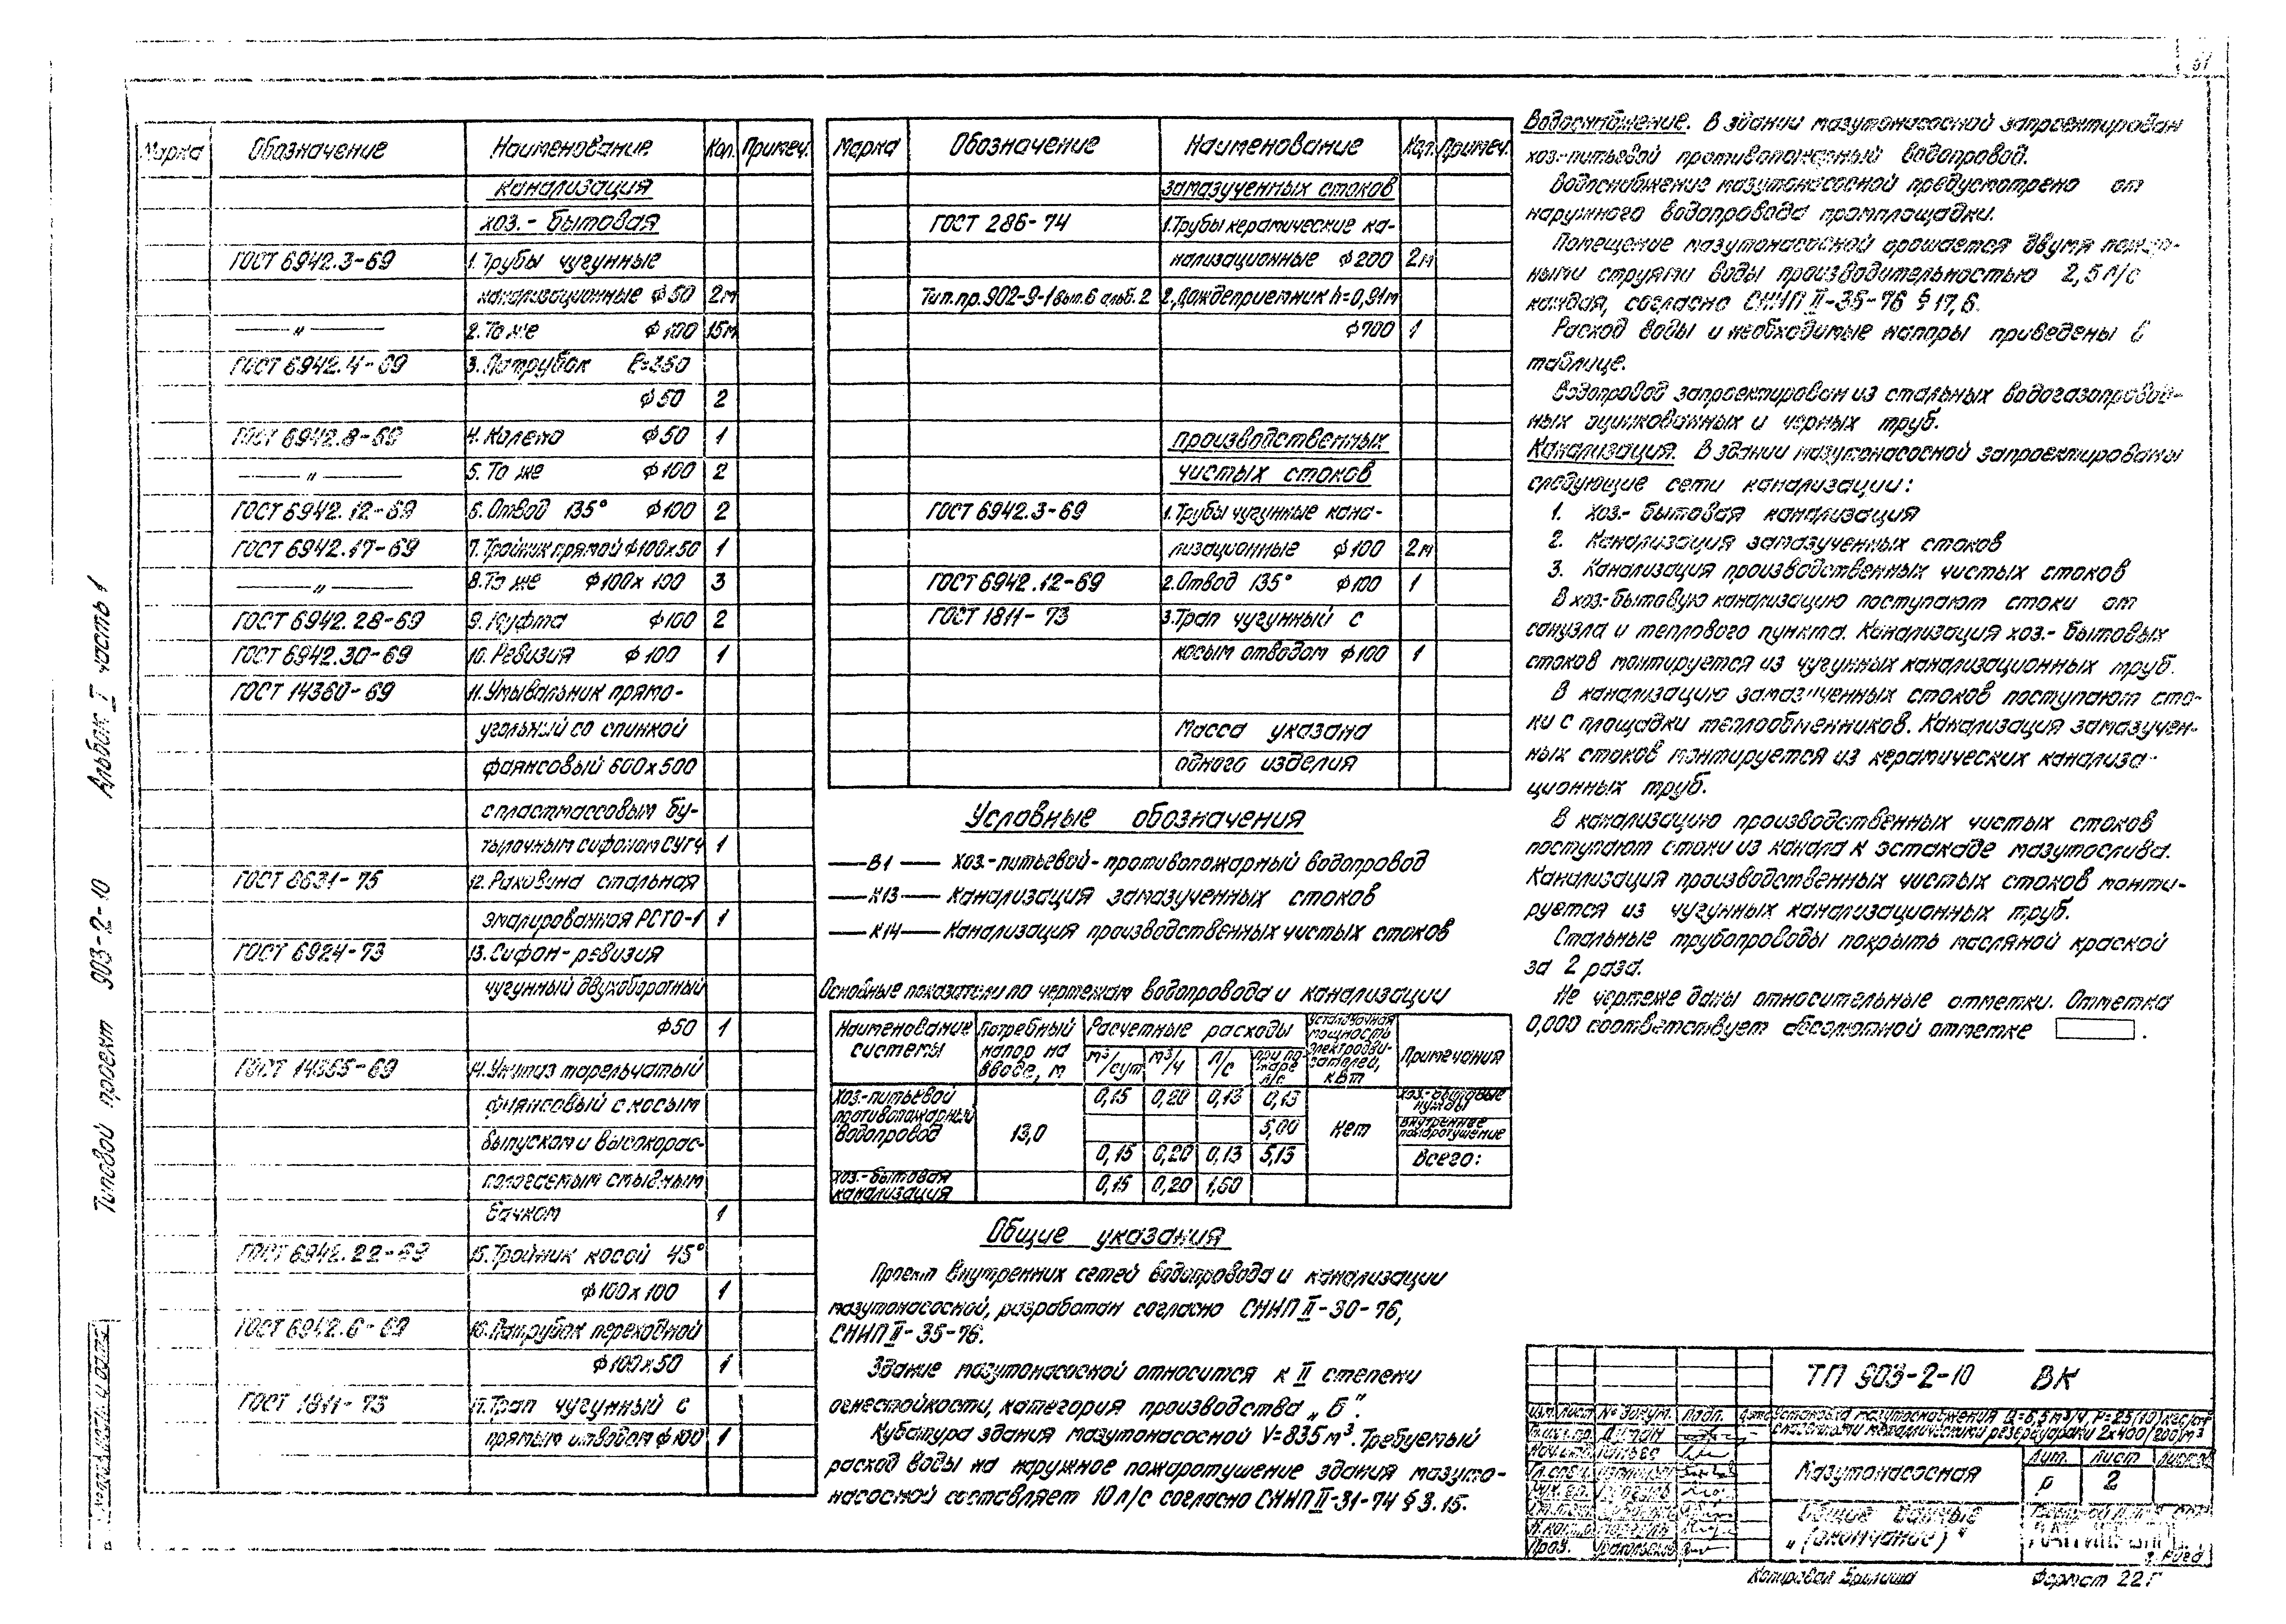 61
Марка Обозначение Наименование Кол. Примеч.
канализация
хоз.- бытовая
ГОСТ 6942.3-69 1. Трубы чугунные
канализационные ф50 2м
—〃— 2. То же ф100 15м
ГОСТ 6942.4-69 3. Патрубок ℓ=350
ф50 2
ГОСТ 6942.8-69 4. Колено ф50 1
—〃— 5. То же ф100 2
ГОСТ 6942.12-69 6. Отвод 135° ф100 2
ГОСТ 6942.17-69 7. Тройник прямой ф100х50 1
—〃— 8. То же ф100х100 3
ГОСТ 6942.28-69 9. Муфта ф100 2
ГОСТ 6942.30-69 10. Ревизия ф100 1
ГОСТ 14360-69 11. Умывальник прямо-
угольный со спинкой
фаянсовый 600х500
с пластмассовым бу-
тылочным сифоном СУГЧ 1
ГОСТ 8631-75 12. Раковина стальная
эмалированная РСТО-1 1
ГОСТ 6924-73 13. Сифон-ревизия
чугунный двухоборотный
ф50 1
ГОСТ 14355-69 14. Унитаз тарельчатый
фаянсовый с косым
выпуском и высокорас-
полагаемым смывным
бачком 1
ГОСТ 6942.22-69 15. Тройник косой 45°
ф100х100 1
ГОСТ 6942.6-69 16. Патрубок переходной
ф100х50 1
ГОСТ 1811-73 17. Трап чугунный с
прямым отводом ф100 1
Марка Обозначение Наименование Кол. Примеч.
замазученных стоков
ГОСТ 286-74 1. Трубы керамические ка-
нализационные ф200 2м
Тип.пр. 902-9-1 вып.6 альб.2 2. Дождеприемник h=0,91м
ф700 1
производственных
чистых стоков
ГОСТ 6942.3-69 1. Трубы чугунные кана-
лизационные ф100 2м
ГОСТ 6942.12-69 2. Отвод 135° ф100 1
ГОСТ 1811-73 3. Трап чугунный с
косым отводом ф100 1
Масса указана
одного изделия
Условные обозначения
—В1— Хоз-питьевой-противопожарный водопровод
—К13— Канализация замазученных стоков
—К14— Канализация производственных чистых стоков
Основные показатели по чертежам водопровода и канализации
Наименование системы Потребный напор на вводе, м Расчетные расходы Установочная мощность электродвигателей, кВт Примечания
м³/сут м³/ч л/с при пожаре л/с
Хоз.-питьевой противопожарный водопровод 13,0 0,15 0,20 0,13 0,13 Нет Хоз.-бытовые нужды
5,00 Внутреннее пожаротушение
0,15 0,20 0,13 5,13 Всего:
Хоз.-бытовая канализация 0,15 0,20 1,60
Общие указания
Проект внутренних сетей водопровода и канализации
мазутонасосной, разработан согласно СНИП II-30-76,
СНИП II-35-76.
Здание мазутонасосной относится к II степени
огнестойкости, категория производства „Б".
Кубатура здания мазутонасосной V=835м³. Требуемый
расход воды на наружное пожаротушение здания мазуто-
насосной составляет 10л/с согласно СНИП II-31-74 § 3.15.
Водоснабжение. В здании мазутонасосной запроектирован
хоз.-питьевой противопожарный водопровод.
Водоснабжение мазутонасосной предусмотрено от
наружного водопровода промплощадки.
Помещение мазутонасосной орошается двумя пожар-
ными струями воды производительностью 2,5 л/с
каждая, согласно СНИП II-35-76 § 17,6.
Расход воды и необходимые напоры приведены в
таблице.
Водопровод запроектирован из стальных водогазопровод-
ных оцинкованных и черных труб.
Канализация. В здании мазутонасосной запроектированы
следующие сети канализации:
1. Хоз.- бытовая канализация
2. Канализация замазученных стоков
3. Канализация производственных чистых стоков
В хоз.-бытовую канализацию поступают стоки от
санузла и теплового пункта. Канализация хоз.- бытовых
стоков монтируется из чугунных канализационных труб.
В канализацию замазученных стоков поступают сто-
ки с площадки теплообменников. Канализация замазучен-
ных стоков монтируется из керамических канализа-
ционных труб.
В канализацию производственных чистых стоков
поступают стоки из канала к эстакаде мазутослива.
Канализация производственных чистых стоков монти-
руется из чугунных канализационных труб.
Стальные трубопроводы покрыть масляной краской
за 2 раза.
На чертеже даны относительные отметки. Отметка
0,000 соответствует абсолютной отметке .
Типовой проект 903-2-10 Альбом I часть 1
ТП 903-2-10 ВК
Изм Лист № докум. Подп. Дата
Установка мазутоснабжения Q=6,5м³/ч, Р=25(10)кгс/см²
с наземными металлическими резервуарами 2х400(200)м³
Мазутонасосная
Лит. Лист Листов
Р 2
Общие данные
„(окончание)"
г. Рига
Пров.
Копировал Формат 22Г